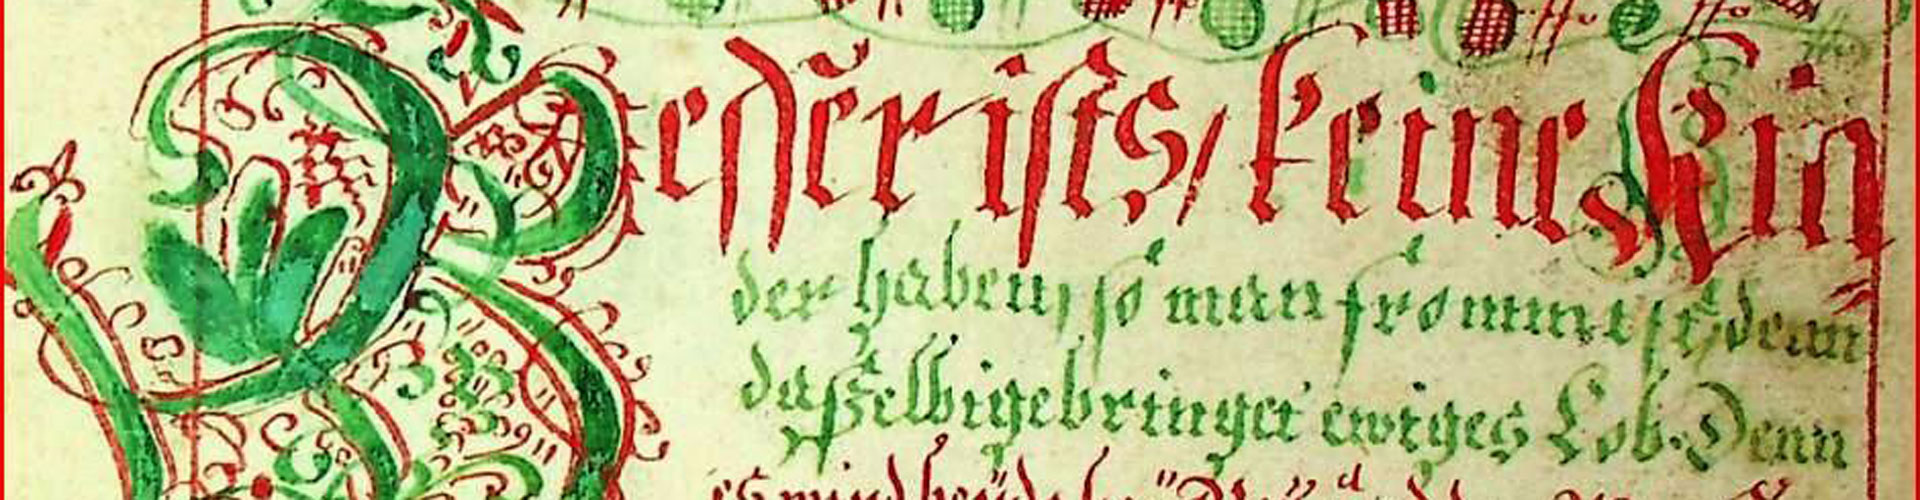 Besser ists / keine Kin
der haben, so man fromm ist, denn
dasselbige bringet ewiges Lob. Denn
es wird beÿde bey